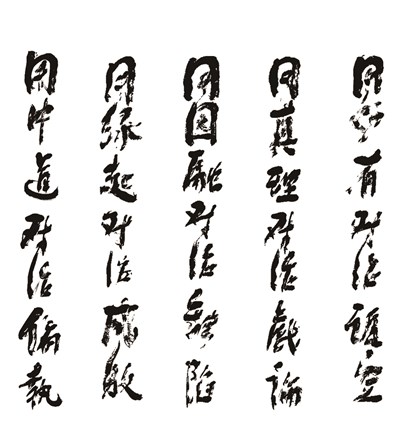 用妙有对治空
用真理对治戲論
用圓融对治缺陷
用緣起对治成敗
用中道对治偏執